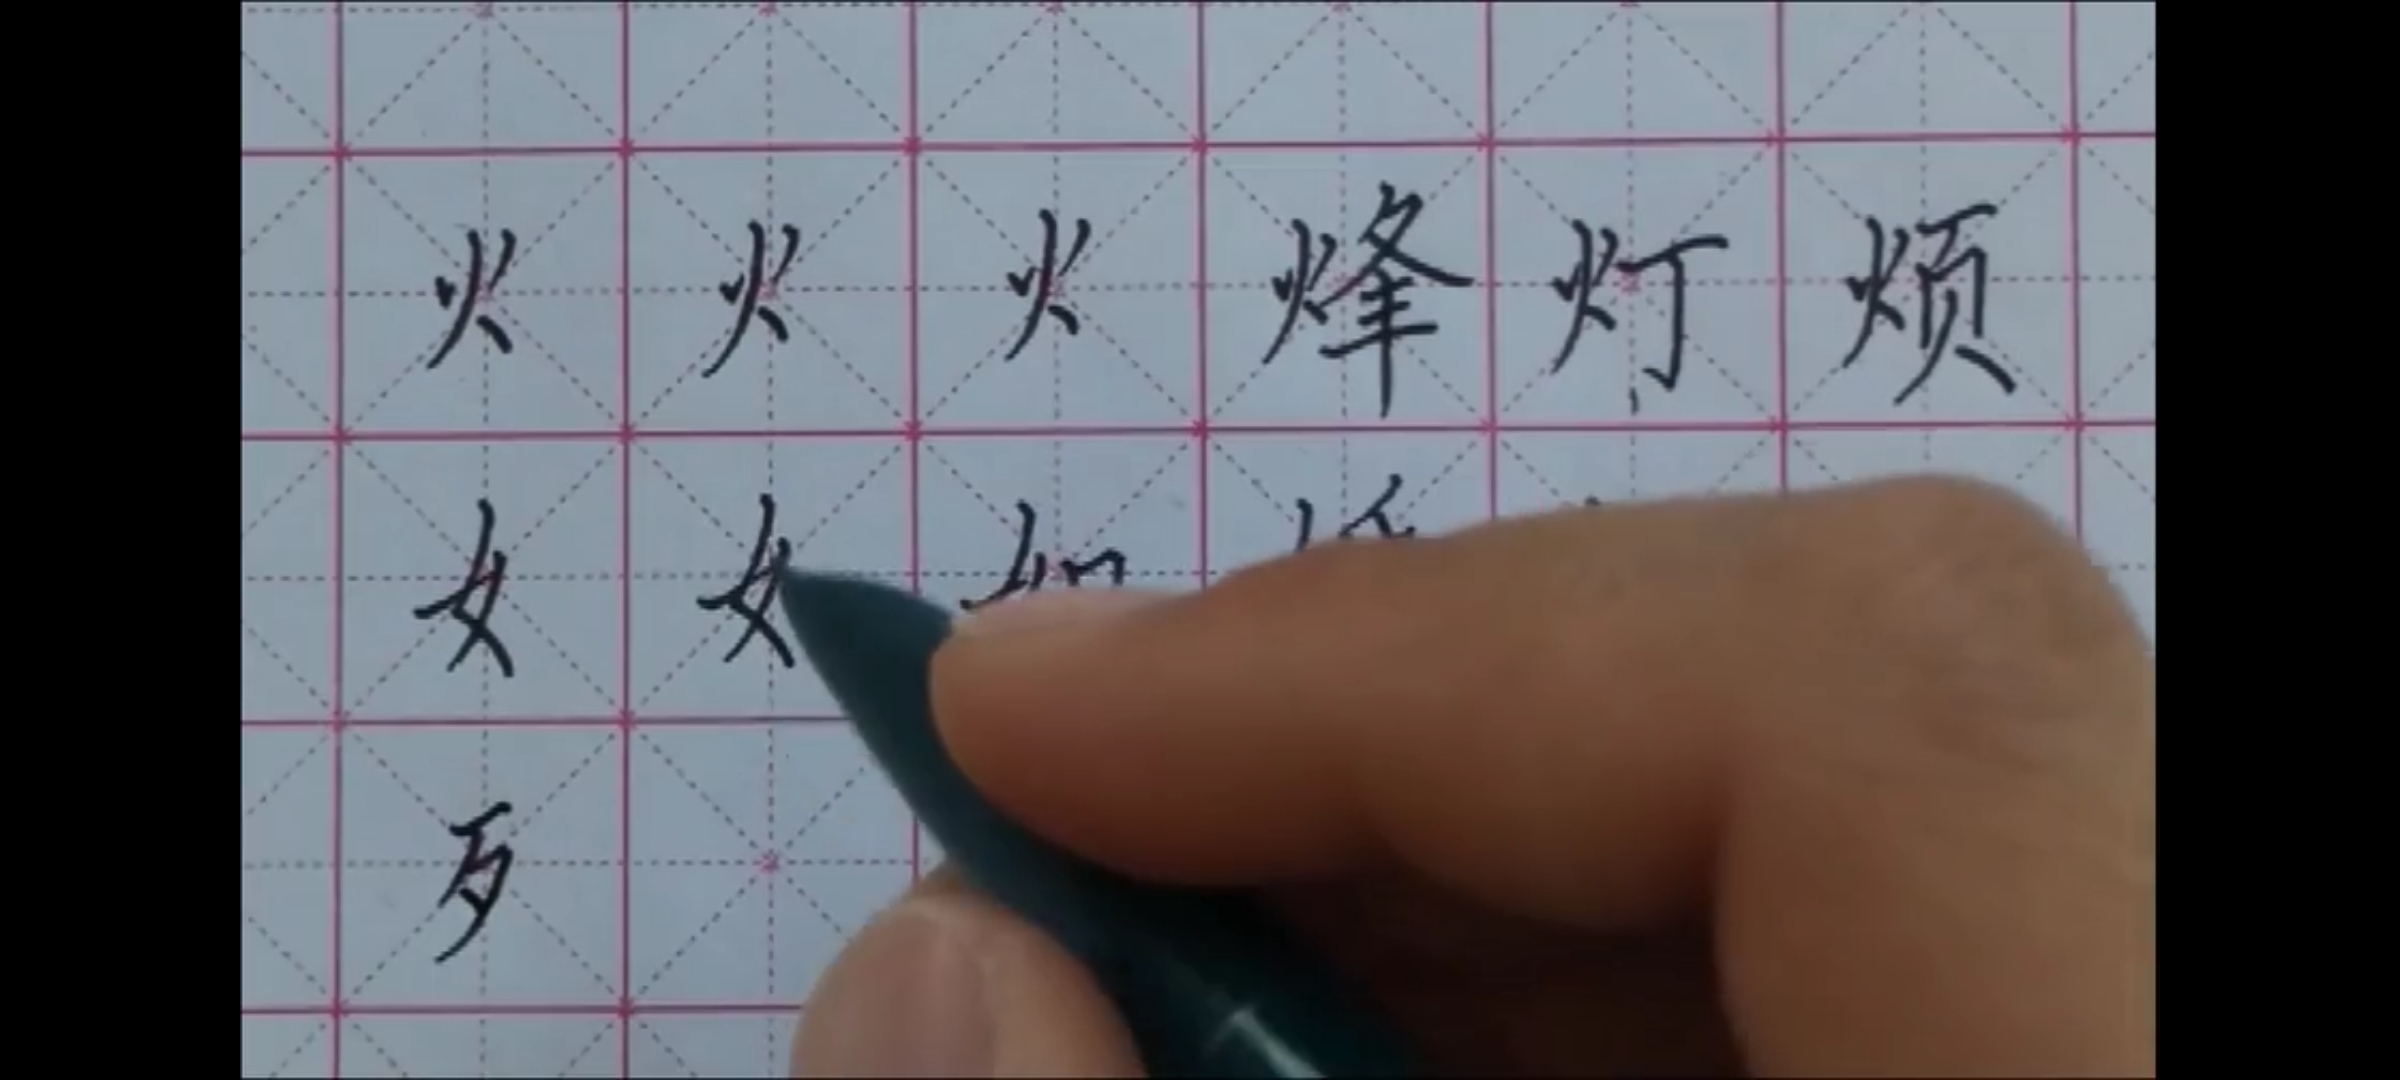 火 火 火 烽 灯 烦
女 女 如
歹